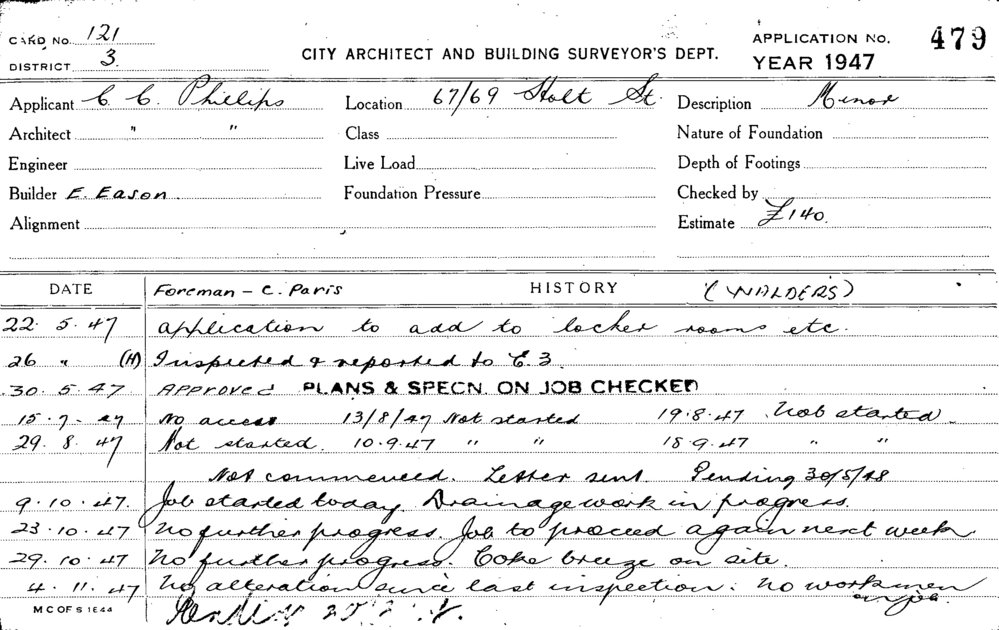 CARD No. 121
DISTRICT 3.
CITY ARCHITECT AND BUILDING SURVEYOR'S DEPT.
APPLICATION NO. 479
YEAR 1947
Applicant C. C. Phillips Location 67/69 Holt St. Description Minor
Architect " " Class Nature of Foundation
Engineer Live Load Depth of Footings
Builder E. Eason. Foundation Pressure Checked by
Alignment Estimate £140.
DATE Foreman - C. Paris HISTORY (WALDERS)
22. 5. 47 application to add to locker rooms etc.
26 " (H) Inspected & reported to E.3.
30. 5. 47 APPROVED PLANS & SPECN. ON JOB CHECKED
15. 7. 47 No access 13/8/47 Not started 19.8.47 Not started
29. 8. 47 Not started. 10.9.47 " " 18.9.47 " "
Not commenced. Letter sent. Pending 30/5/48
9. 10. 47. Job started today. Drainage work in progress.
23. 10. 47 No further progress. Job to proceed again next week
29. 10. 47 No further progress. Coke breeze on site.
4. 11. 47 No alteration since last inspection. No workmen
on job.
M C OF S 1E44